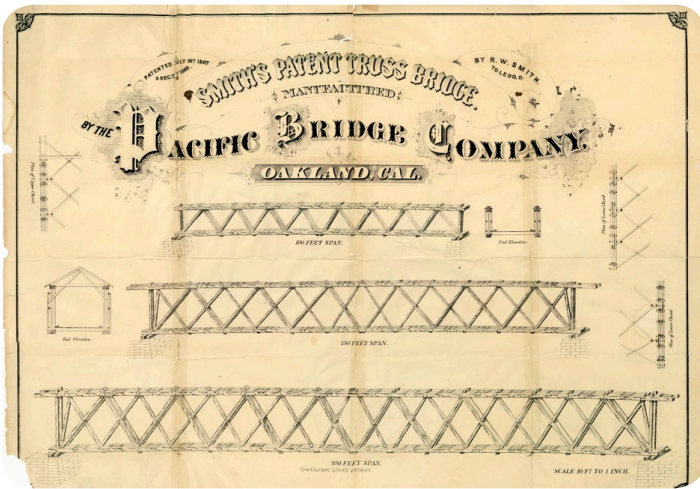 PATENTED JULY 16TH 1867
& DEC.
SMITH'S PATENT TRUSS BRIDGE.
BY R. W. SMITH.
TOLEDO, O.
MANUFACTURED
BY THE
PACIFIC BRIDGE COMPANY,
OAKLAND, CAL.
Plan of Upper Chord
100 FEET SPAN.
End Elevation.
Plan of Lower Chord
End Elevation.
150 FEET SPAN.
Plan of Lower Chord
200 FEET SPAN.
SCALE 10 FT TO 1 INCH.